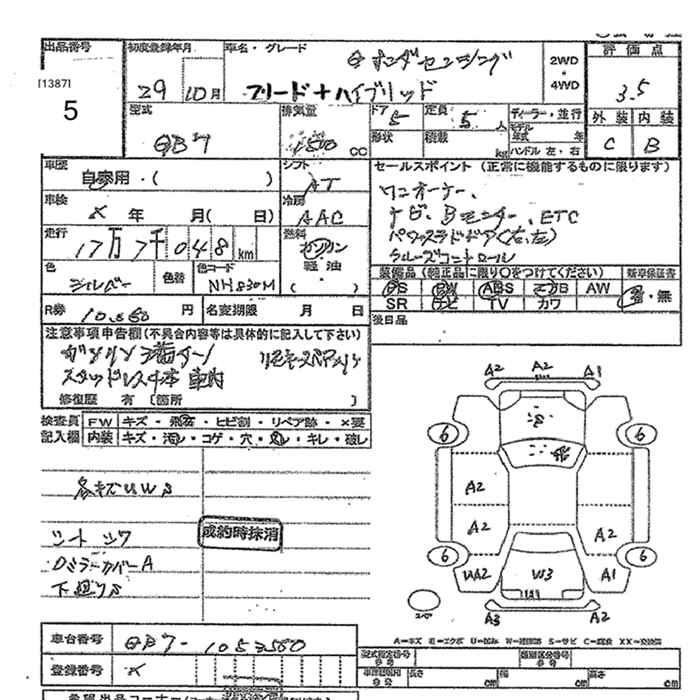 出品番号 初度登録年月 車名・グレード 2WD ・ 4WD 評価点
[1387]
5
29 10月 フリード+ハイブリッド
ホンダセンシング
3.5
型式 排気量 ドア 定員 ディーラー・並行 外装 内装
GB7 1500 CC 5 5人 モデル年式 年 C B
形状 積載 kg ハンドル 左・右
車歴 自家用・( ) シフト AT
セールスポイント (正常に機能するものに限ります)
ワンオーナー、
ナビ、Bモニター、ETC
パワースライドドア(右、左)
クルーズコントロール
車検 X 年 月( 日) 冷房 AAC
走行 17万7千048 km 燃料 ガソリン 軽油
色 シルバー 色替 色コード NH830M
装備品 (純正品に限り○をつけてください) 新車保証書
PS PW ABS エアB AW 有・無
SR ナビ TV カワ
R券 10,560 円 名変期限 月 日
後日品
注意事項申告欄(不具合内容等は具体的に記入して下さい)
ガソリン満タン リモキースペアメリ
スタッドレス4本 車内
修復歴 有 (箇所 )
検査員記入欄 FW キズ・飛石・ヒビ割・リペア跡・×要
内装 キズ・汚レ・コゲ・穴・スレ・キレ・破レ
各キズUWS
シート シワ
成約時抹消
DミラーカバーA
下廻りS
A2 A2 A1
6 6
A2
A2 A2
6 6
UA2 W3 A1
スペア A3 A2
A=キズ E=エクボ U=凹み W=補修跡 S=サビ C=腐食 XX=交換済
車台番号 GB7-1053580
登録番号 X
型式指定番号 類別区分番号
長さ cm 幅 cm 高さ cm